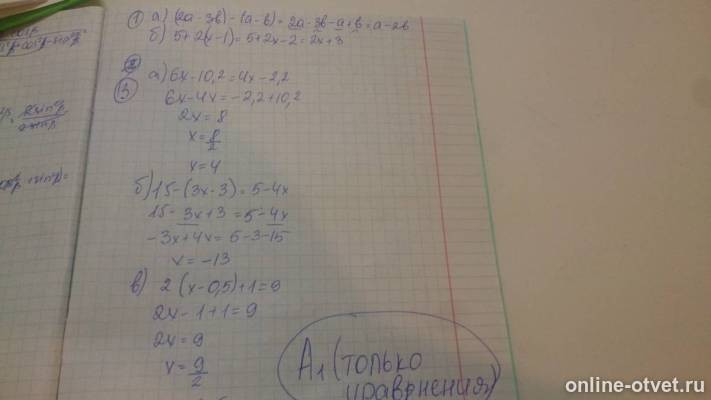 ① а) (2а - 3в) - (а - в) = 2а - 3в - а + в = а - 2в
б) 5 + 2(x - 1) = 5 + 2x - 2 = 2x + 3
②
③ а) 6x - 10,2 = 4x - 2,2
6x - 4x = -2,2 + 10,2
2x = 8
x = 8/2
x = 4
б) 15 - (3x - 3) = 5 - 4x
15 - 3x + 3 = 5 - 4x
-3x + 4x = 5 - 3 - 15
x = -13
в) 2 (x - 0,5) + 1 = 9
2x - 1 + 1 = 9
2x = 9
x = 9/2
А₁ (только
уравнения)
online-otvet.ru